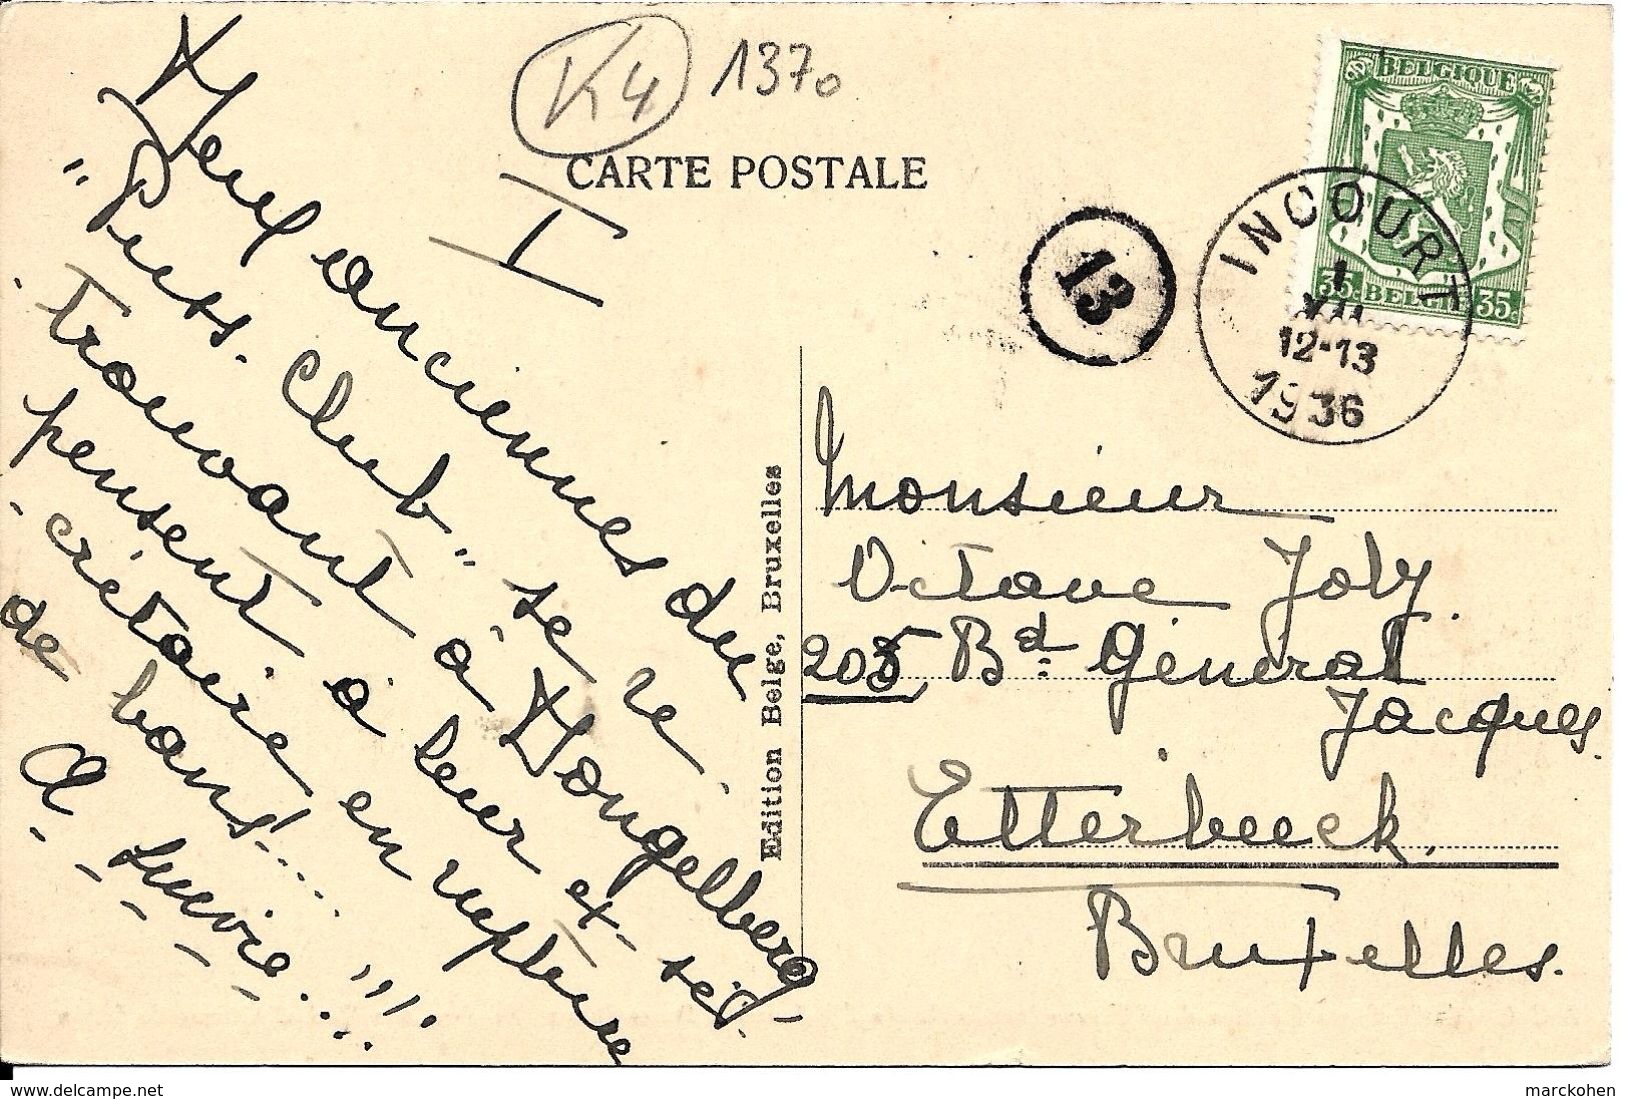 K4
1370
CARTE POSTALE
I
BELGIQUE
35c BELGIË 35c
INCOURT
1
VII
12-13
1936
13
anciennes du
"Puss. Club" se re-
trouvant à Hongelberg,
pensent à leur ex-sec-
crétaire en rupture
de bans!... !!!
A suivre...
Edition Belge, Bruxelles
Monsieur
Octave Joly.
205 Bd. Général
Jacques.
Etterbeeck.
Bruxelles.
www.delcampe.net
marckohen